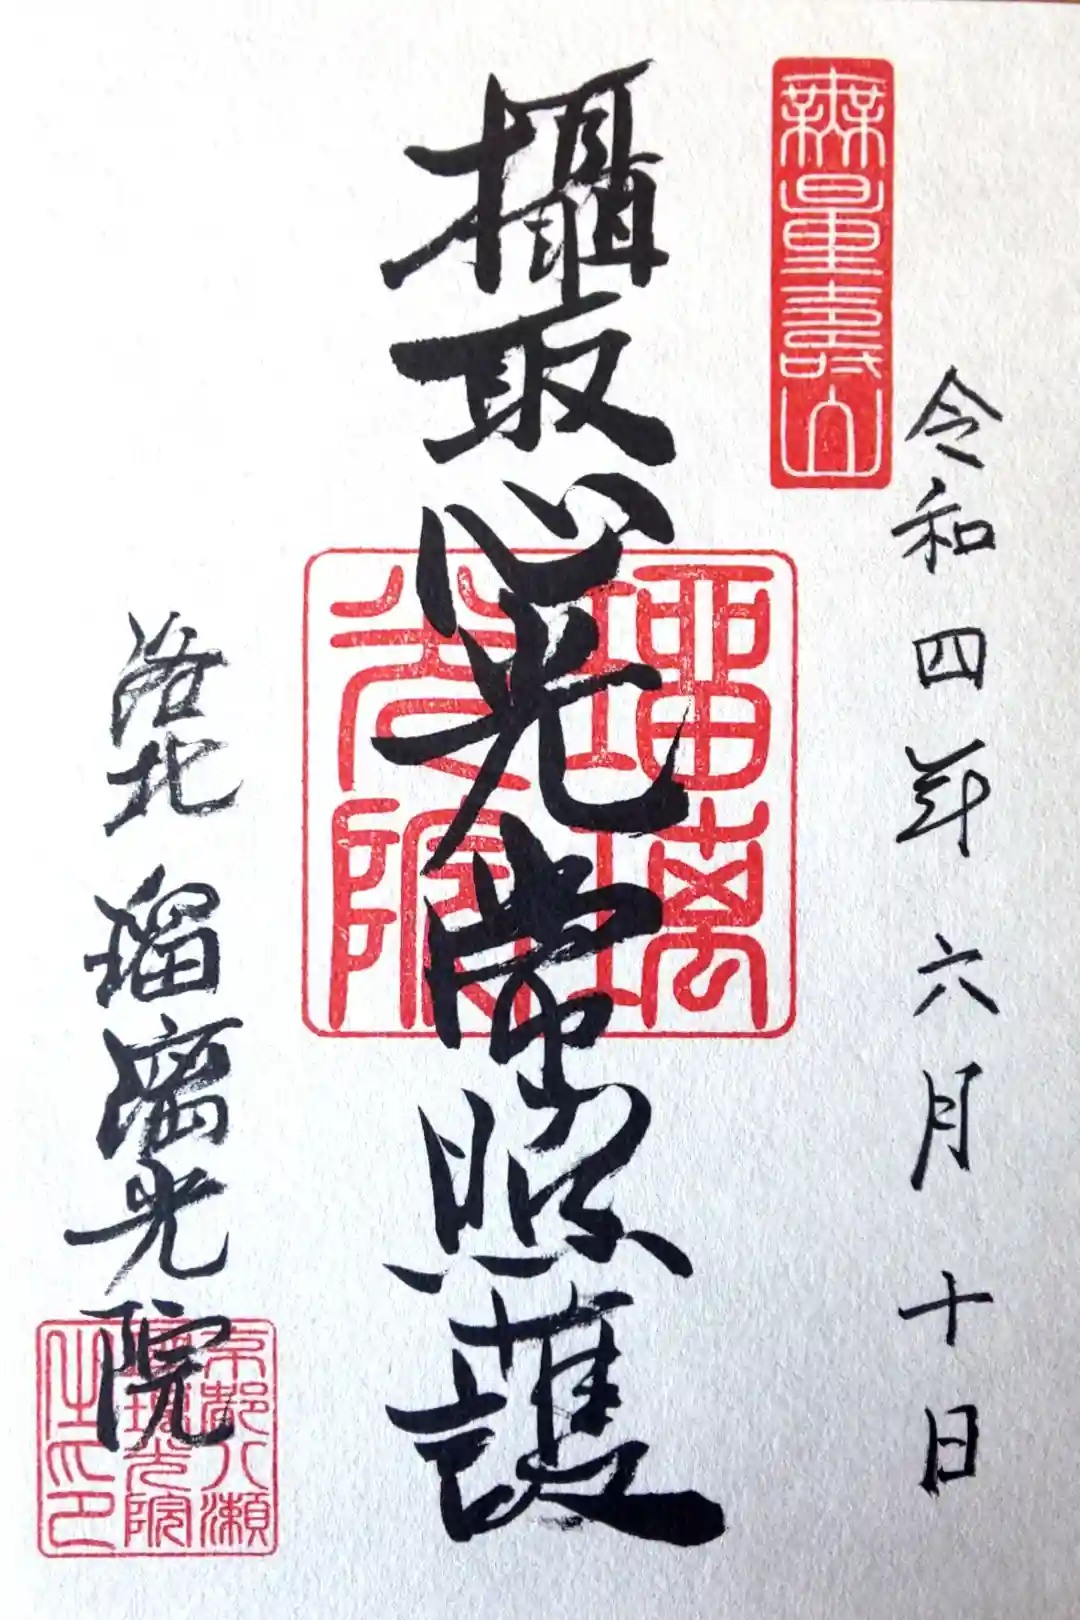 無量壽山
令和四年六月十日
攝取心光常照護
瑠璃光院
洛北 瑠璃光院
京都八瀬
瑠璃光院
之印